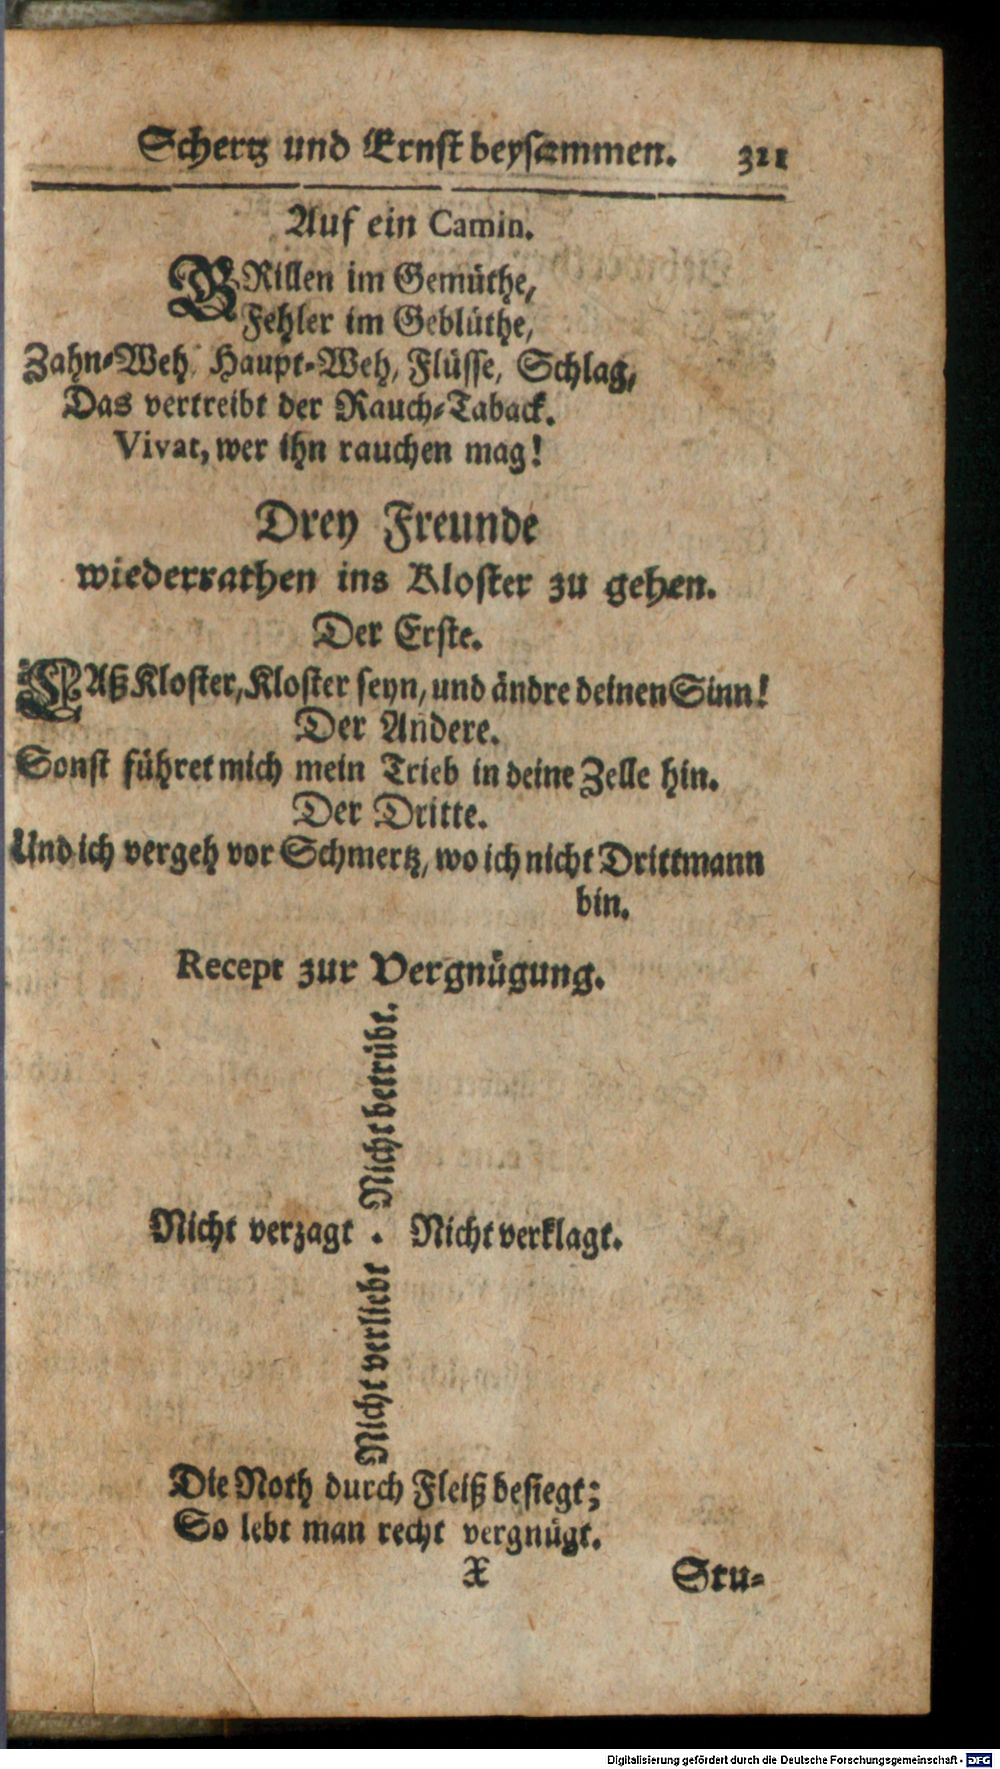 Schertz und Ernst beysammen. 311
Auf ein Camin.
GRillen im Gemüthe,
Fehler im Geblüthe,
Zahn-Weh, Haupt-Weh, Flüsse, Schlag,
Das vertreibt der Rauch-Taback.
Vivat, wer ihn rauchen mag!
Drey Freunde
wiederrathen ins Kloster zu gehen.
Der Erste.
LAß Kloster, Kloster seyn, und ändre deinen Sinn!
Der Andere.
Sonst führet mich mein Trieb in deine Zelle hin.
Der Dritte.
Und ich vergeh vor Schmertz, wo ich nicht Drittmann
bin.
Recept zur Vergnügung.
Nicht betrübt.
Nicht verzagt . Nicht verklagt.
Nicht verliebt
Die Noth durch Fleiß besiegt;
So lebt man recht vergnügt.
X Stu-
Digitalisierung gefördert durch die Deutsche Forschungsgemeinschaft - DFG